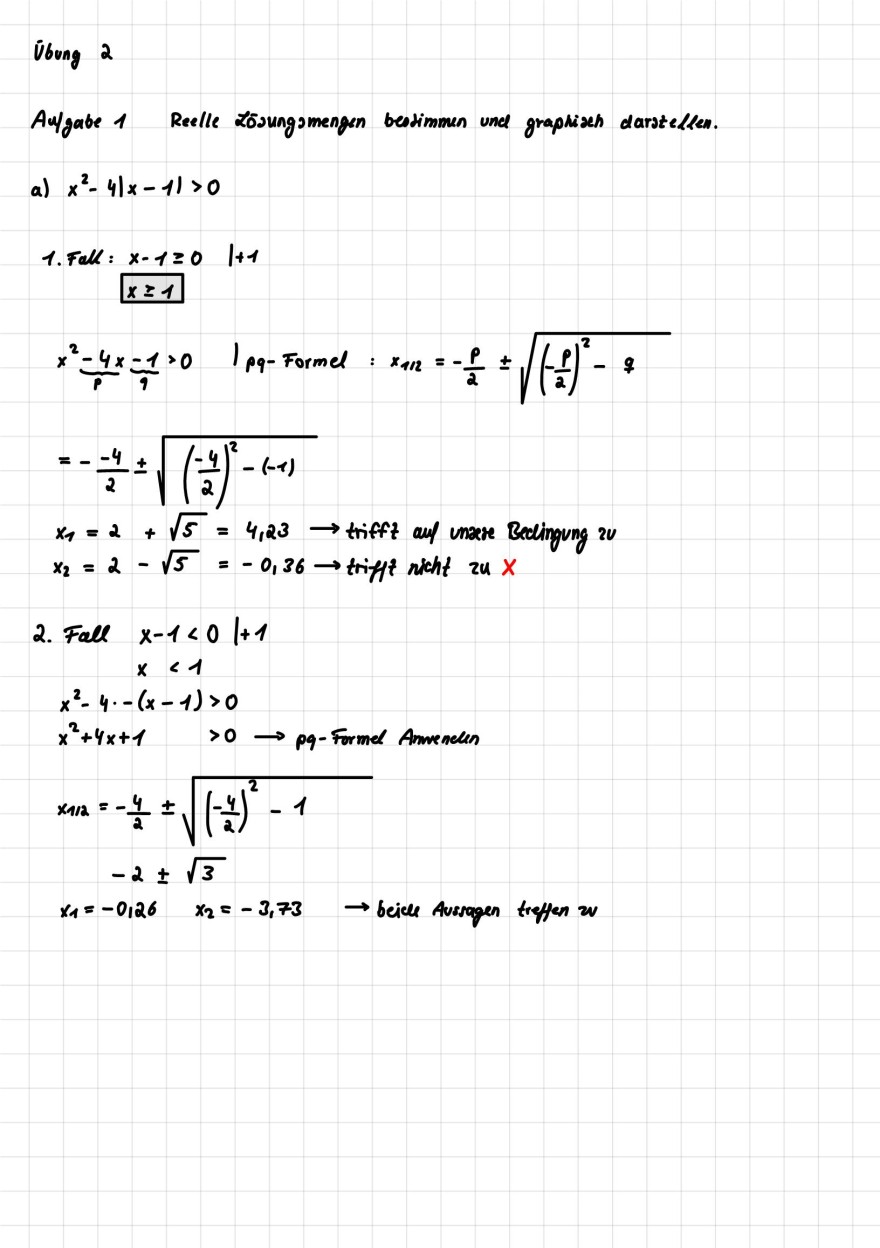 Übung 2
Aufgabe 1 Reelle Lösungsmengen bestimmen und graphisch darstellen.
a) x² - 4|x - 1| > 0
1. Fall: x - 1 ≥ 0 |+1
x ≥ 1
x² - 4x - 1 > 0 | pq-Formel : x1/2 = - p/2 ± √((-p/2)² - q)
p q
= - -4/2 ± √((-4/2)² - (-1))
x1 = 2 + √5 = 4,23 → trifft auf unsere Bedingung zu
x2 = 2 - √5 = - 0,36 → trifft nicht zu X
2. Fall x - 1 < 0 |+1
x < 1
x² - 4 · - (x - 1) > 0
x² + 4x + 1 > 0 → pq-Formel Anwenden
x1/2 = - 4/2 ± √((-4/2)² - 1
- 2 ± √3
x1 = -0,26 x2 = - 3,73 → beide Aussagen treffen zu